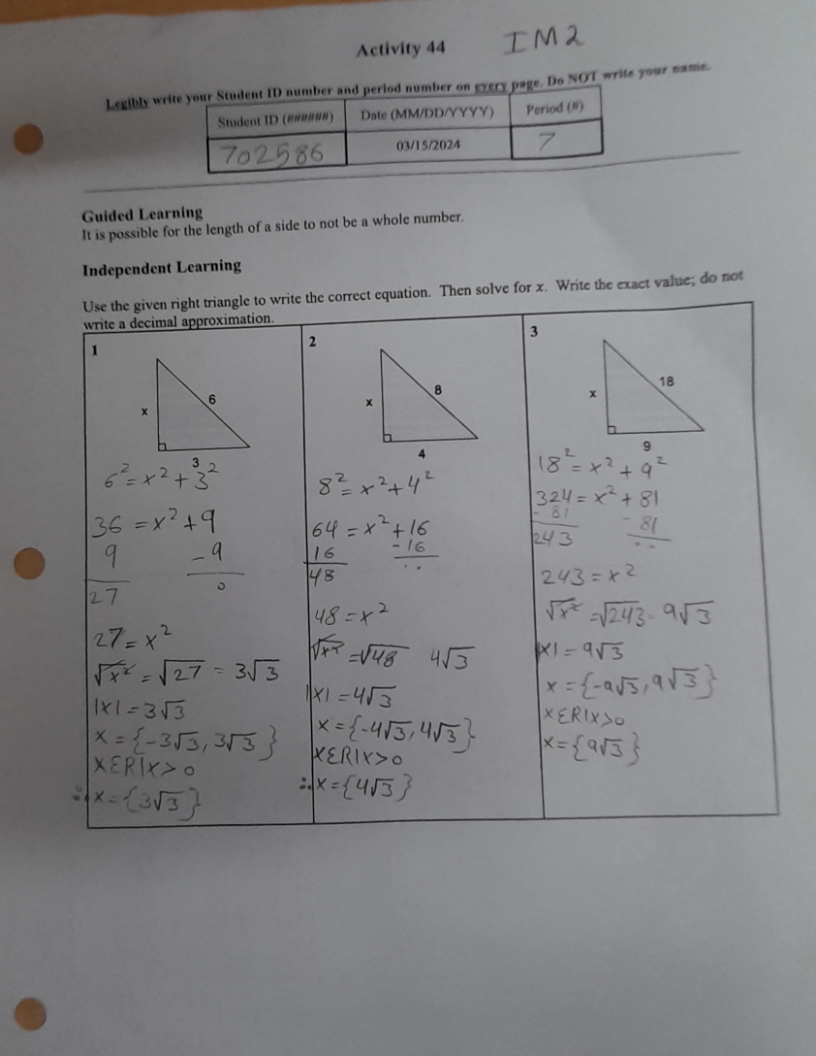 Activity 44 IM2
Legibly write your Student ID number and period number on every page. Do NOT write your name.
Student ID (######) Date (MM/DD/YYYY) Period (#)
702586 03/15/2024 7
Guided Learning
It is possible for the length of a side to not be a whole number.
Independent Learning
Use the given right triangle to write the correct equation. Then solve for x. Write the exact value; do not
write a decimal approximation.
1
x 6
3
6² = x² + 3²
36 = x² + 9
9 - 9
27 0
27 = x²
√x² = √27 = 3√3
|x| = 3√3
x = {-3√3, 3√3}
XεR|X>0
∴ x = {3√3}
2
x 8
4
8² = x² + 4²
64 = x² + 16
16 - 16
48
48 = x²
√x² = √48 4√3
|x| = 4√3
x = {-4√3, 4√3}
XεR|X>0
∴ x = {4√3}
3
x 18
9
18² = x² + 9²
324 = x² + 81
- 81 - 81
243
243 = x²
√x² = √243 · 9√3
|x| = 9√3
x = {-9√3, 9√3}
XεR|X>0
x = {9√3}